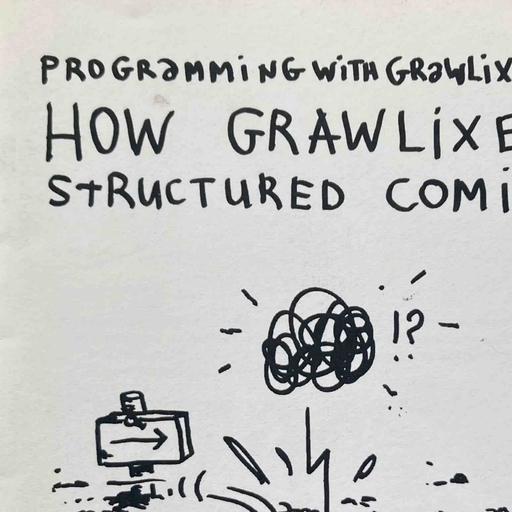 PROGRAMMiNG WiTH GRAWLiX
HOW GRAWLiXE
STRUCTURED COMi
!?